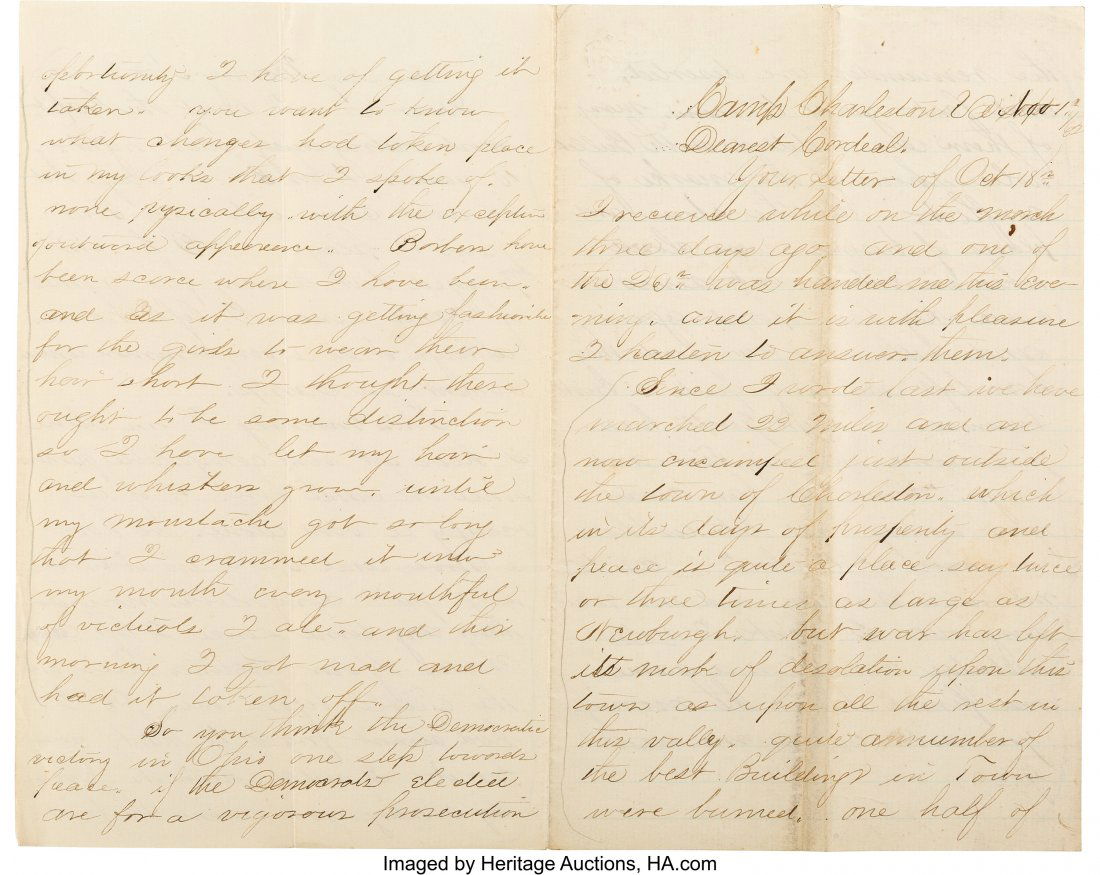 Camp Charleston Va Nov 1st /62
Dearest Cordeal.
Your Letter of Oct 18th
I recieved while on the march
three days ago, and one of
the 26th was handed me this eve-
ning. and it is with pleasure
I hasten to answer them.
Since I wrote last we have
marched 22 Miles and are
now encamped just outside
the town of Charleston. which
in its days of prosperity and
peace is quite a place. say twice
or three times as large as
Newburgh. but war has left
its mark of desolation upon this
town as upon all the rest in
this vally. quite a number of
the best Buildings in Town
were burned. one half of
opportunity I have of getting it
taken. you want to know
what changes had taken place
in my looks that I spoke of.
none pysically with the exception
of outward appearence. Barbers have
been scarce where I have been.
and as it was getting fashionable
for the girls to wear their
hair short I thought there
ought to be some distinction
so I have let my hair
and whiskers grow. until
my moustache got so long
that I crammed it into
my mouth every mouthful
of victuals I ate. and this
morning I got mad and
had it taken off.
So you think the Democratic
victory in Ohio one step towards
peace. if the Democrats Elected
are for a vigorous prosecution
Imaged by Heritage Auctions, HA.com